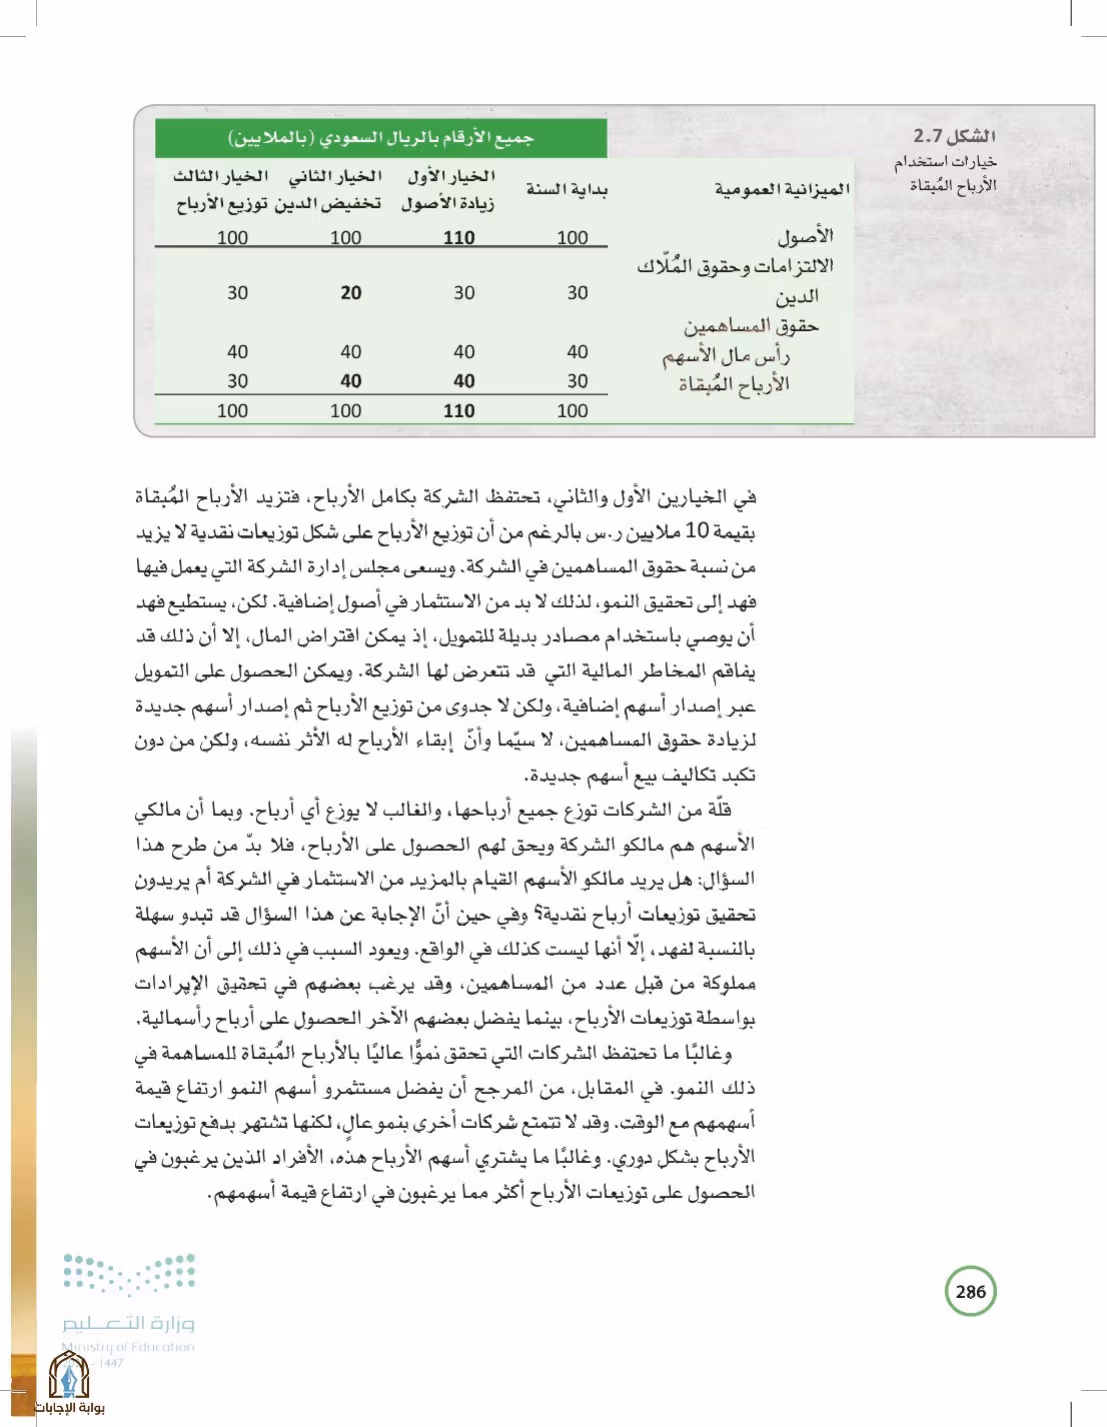 الشكل 2.7
خيارات استخدام
الأرباح المُبقاة
جميع الأرقام بالريال السعودي (بالملايين)
الميزانية العمومية بداية السنة الخيار الأول زيادة الأصول الخيار الثاني تخفيض الدين الخيار الثالث توزيع الأرباح
الأصول 100 110 100 100
الالتزامات وحقوق المُلّاك
الدين 30 30 20 30
حقوق المساهمين
رأس مال الأسهم 40 40 40 40
الأرباح المُبقاة 30 40 40 30
100 110 100 100
في الخيارين الأول والثاني، تحتفظ الشركة بكامل الأرباح، فتزيد الأرباح المُبقاة
بقيمة 10 ملايين ر.س بالرغم من أن توزيع الأرباح على شكل توزيعات نقدية لا يزيد
من نسبة حقوق المساهمين في الشركة. ويسعى مجلس إدارة الشركة التي يعمل فيها
فهد إلى تحقيق النمو، لذلك لا بد من الاستثمار في أصول إضافية. لكن، يستطيع فهد
أن يوصي باستخدام مصادر بديلة للتمويل، إذ يمكن اقتراض المال، إلا أن ذلك قد
يفاقم المخاطر المالية التي قد تتعرض لها الشركة. ويمكن الحصول على التمويل
عبر إصدار أسهم إضافية، ولكن لا جدوى من توزيع الأرباح ثم إصدار أسهم جديدة
لزيادة حقوق المساهمين، لا سيّما وأنّ إبقاء الأرباح له الأثر نفسه، ولكن من دون
تكبد تكاليف بيع أسهم جديدة.
قلّة من الشركات توزع جميع أرباحها، والغالب لا يوزع أي أرباح. وبما أن مالكي
الأسهم هم مالكو الشركة ويحق لهم الحصول على الأرباح، فلا بدّ من طرح هذا
السؤال: هل يريد مالكو الأسهم القيام بالمزيد من الاستثمار في الشركة أم يريدون
تحقيق توزيعات أرباح نقدية؟ وفي حين أنّ الإجابة عن هذا السؤال قد تبدو سهلة
بالنسبة لفهد، إلّا أنها ليست كذلك في الواقع. ويعود السبب في ذلك إلى أن الأسهم
مملوكة من قبل عدد من المساهمين، وقد يرغب بعضهم في تحقيق الإيرادات
بواسطة توزيعات الأرباح، بينما يفضل بعضهم الآخر الحصول على أرباح رأسمالية.
وغالبًا ما تحتفظ الشركات التي تحقق نموًّا عاليًا بالأرباح المُبقاة للمساهمة في
ذلك النمو. في المقابل، من المرجح أن يفضل مستثمرو أسهم النمو ارتفاع قيمة
أسهمهم مع الوقت. وقد لا تتمتع شركات أخرى بنمو عالٍ، لكنها تشتهر بدفع توزيعات
الأرباح بشكل دوري. وغالبًا ما يشتري أسهم الأرباح هذه، الأفراد الذين يرغبون في
الحصول على توزيعات الأرباح أكثر مما يرغبون في ارتفاع قيمة أسهمهم.
286
وزارة التعليم
Ministry of Education
- 1447
بوابة الإجابات